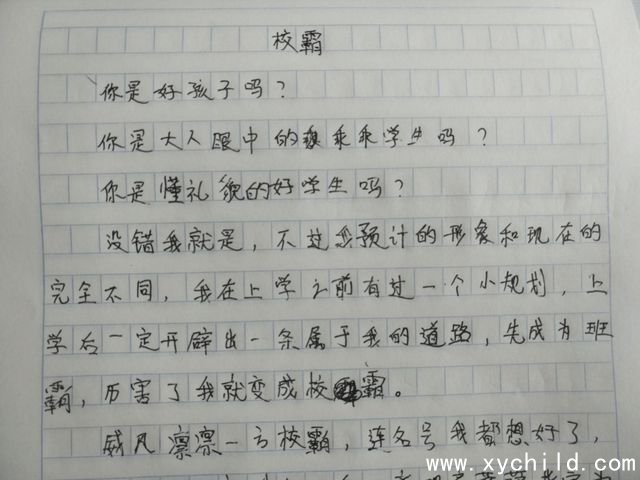 校霸
你是好孩子吗？
你是大人眼中的乖乖学生吗？
你是懂礼貌的好学生吗？
没错我就是，不过我预计的形象和现在的
完全不同，我在上学之前有过一个小规划，上
学后一定开辟出一条属于我的道路，先成为班
霸，厉害了我就变成校霸。
威风凛凛一方校霸，连名号我都想好了，
www.xychild.com